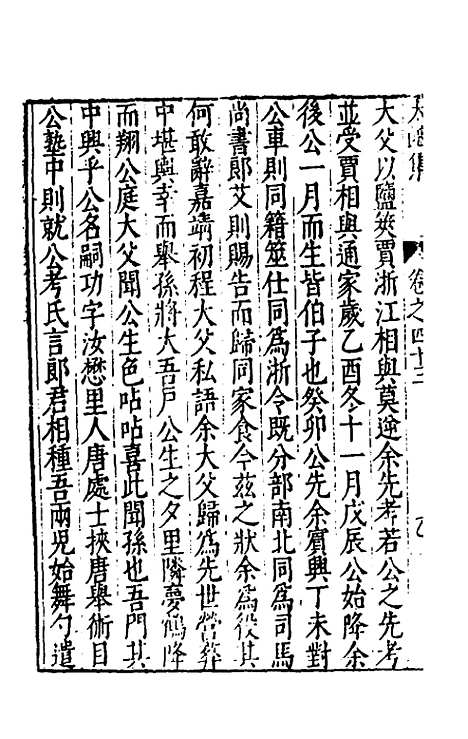 太函集 卷之四十三
大父以鹽筴賈浙江相與莫逆余先考若公之先考
並受賈相與通家歲乙酉冬十一月戊辰公始降余
後公一月而生皆伯子也癸卯公先余賓興丁未對
公車則同籍筮仕同為浙令既分部南北同為司馬
尚書郎艾則賜告而歸同家食今茲之狀余為役其
何敢辭嘉靖初程大父私語余大父歸為先世營葬
中堪輿幸而舉孫將大吾戶公生之夕里隣夢鶴降
而翔公庭大父聞公生色呫呫喜此聞孫也吾門其
中興乎公名嗣功字汝懋里人唐處士挾唐舉術目
公塾中則就公考氏言郎君相種吾兩兒始舞勺遣